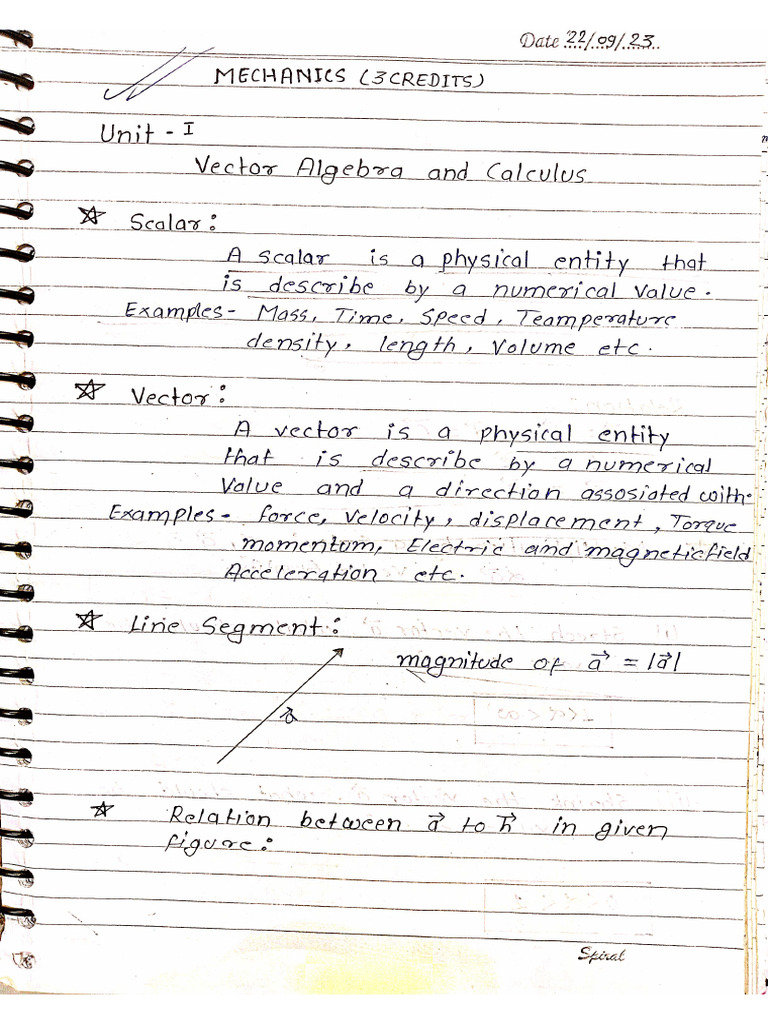 Date 22/09/23
MECHANICS (3CREDITS)
Unit - I
Vector Algebra and Calculus
☆ Scalar:
A scalar is a physical entity that
is describe by a numerical value.
Examples- Mass, Time, Speed, Teamperature
density, length, Volume etc.
☆ Vector:
A vector is a physical entity
that is describe by a numerical
Value and a direction assosiated with.
Examples- force, Velocity, displacement, Torque
momentum, Electric and magneticfield
Acceleration etc.
☆ Line Segment:
magnitude of a⃗ = |a⃗|
a⃗
☆ Relation between a⃗ to h⃗ in given
figure:
Spiral